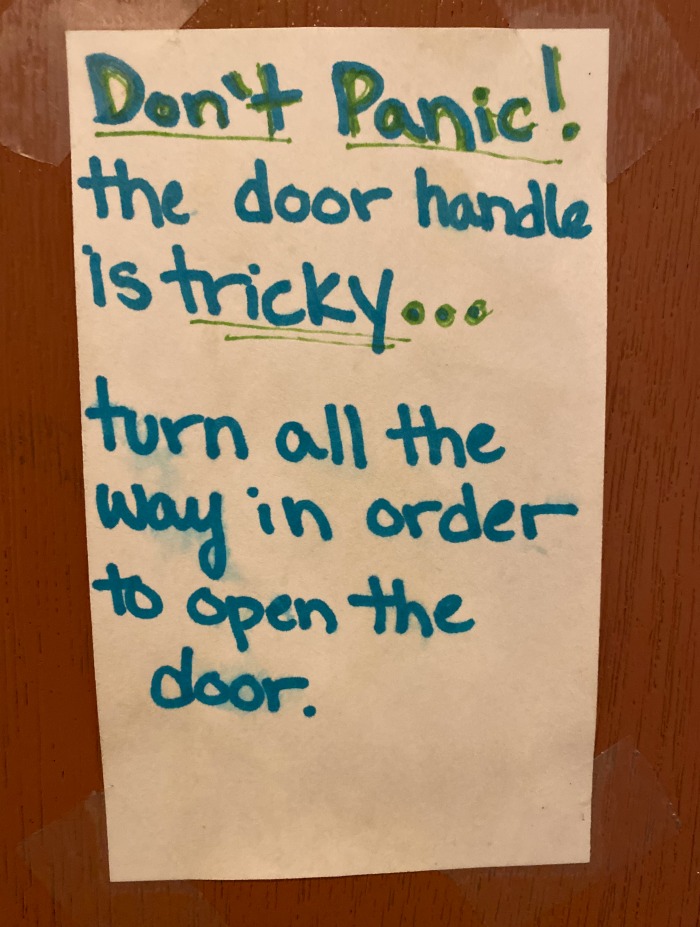 Don't Panic!
the door handle
is tricky...
turn all the
way in order
to open the
door.